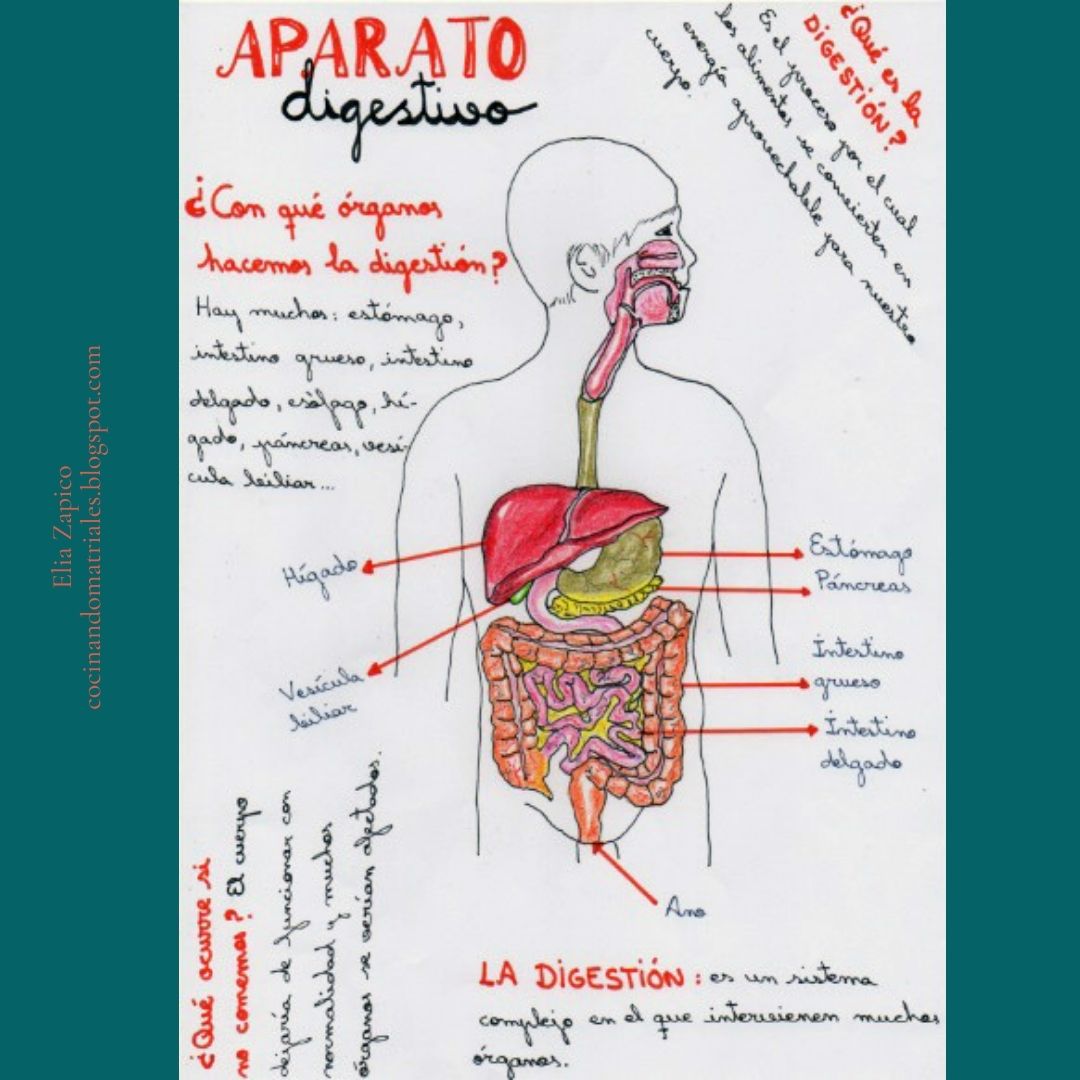 APARATO
digestivo
¿Qué es la
DIGESTIÓN?
Es el proceso por el cual
los alimentos se convierten en
energía aprovechable para nuestro
cuerpo.
¿Con qué órganos
hacemos la digestión?
Hay muchos: estómago,
intestino grueso, intestino
delgado, esófago, hí-
gado, páncreas, vesí-
cula biliar...
Elia Zapico
cocinandomatriales.blogspot.com
Hígado
Vesícula
biliar
Estómago
Páncreas
Intestino
grueso
Intestino
delgado
Ano
¿Qué ocurre si
no comemos? El cuerpo
dejaría de funcionar con
normalidad y muchos
órganos se verían afectados.
LA DIGESTIÓN: es un sistema
complejo en el que intervienen muchos
órganos.